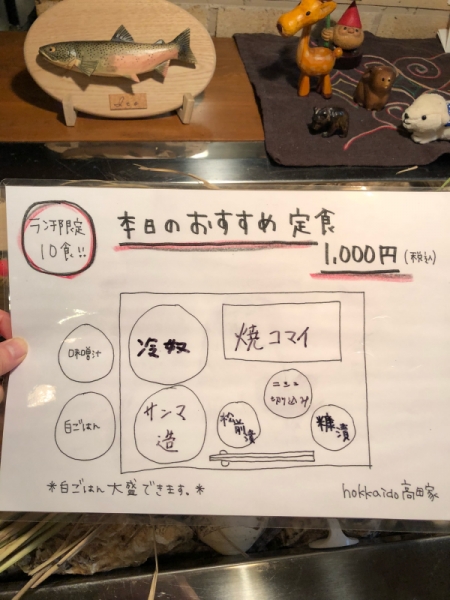 ランチ限定
10食!!
本日のおすすめ定食
1,000円(税込)
味噌汁
冷奴
焼コマイ
白ごはん
サンマ
造
松前漬
ニシン
切り込み
糠漬
*白ごはん大盛できます。*
hokkaido高田家